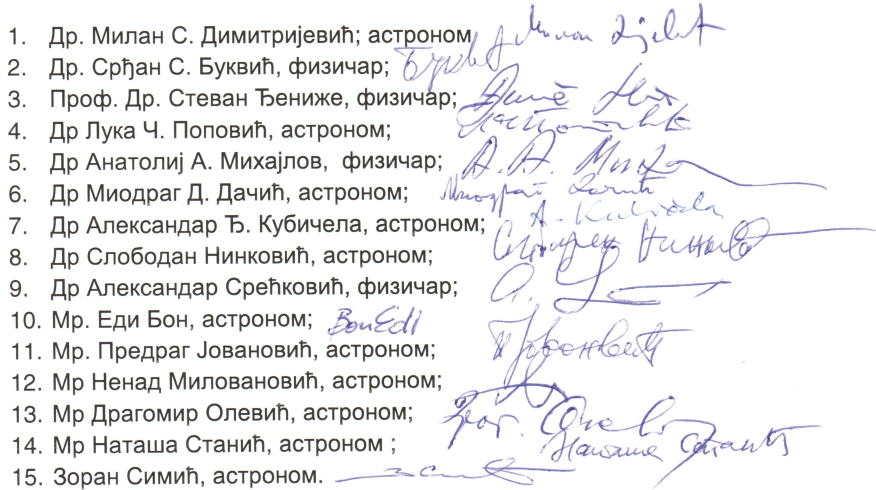 1. Др. Милан С. Димитријевић; астроном
2. Др. Срђан С. Буквић, физичар;
3. Проф. Др. Стеван Ђениже, физичар;
4. Др Лука Ч. Поповић, астроном;
5. Др Анатолиј А. Михајлов, физичар; А. А.
6. Др Миодраг Д. Дачић, астроном; Миодраг Дачић
7. Др Александар Ђ. Кубичела, астроном; A. Kubičela
8. Др Слободан Нинковић, астроном;
9. Др Александар Срећковић, физичар;
10. Мр. Еди Бон, астроном; Bon Edi
11. Мр. Предраг Јовановић, астроном;
12. Мр Ненад Миловановић, астроном;
13. Мр Драгомир Олевић, астроном;
14. Мр Наташа Станић, астроном ; Наташа Станић
15. Зоран Симић, астроном.